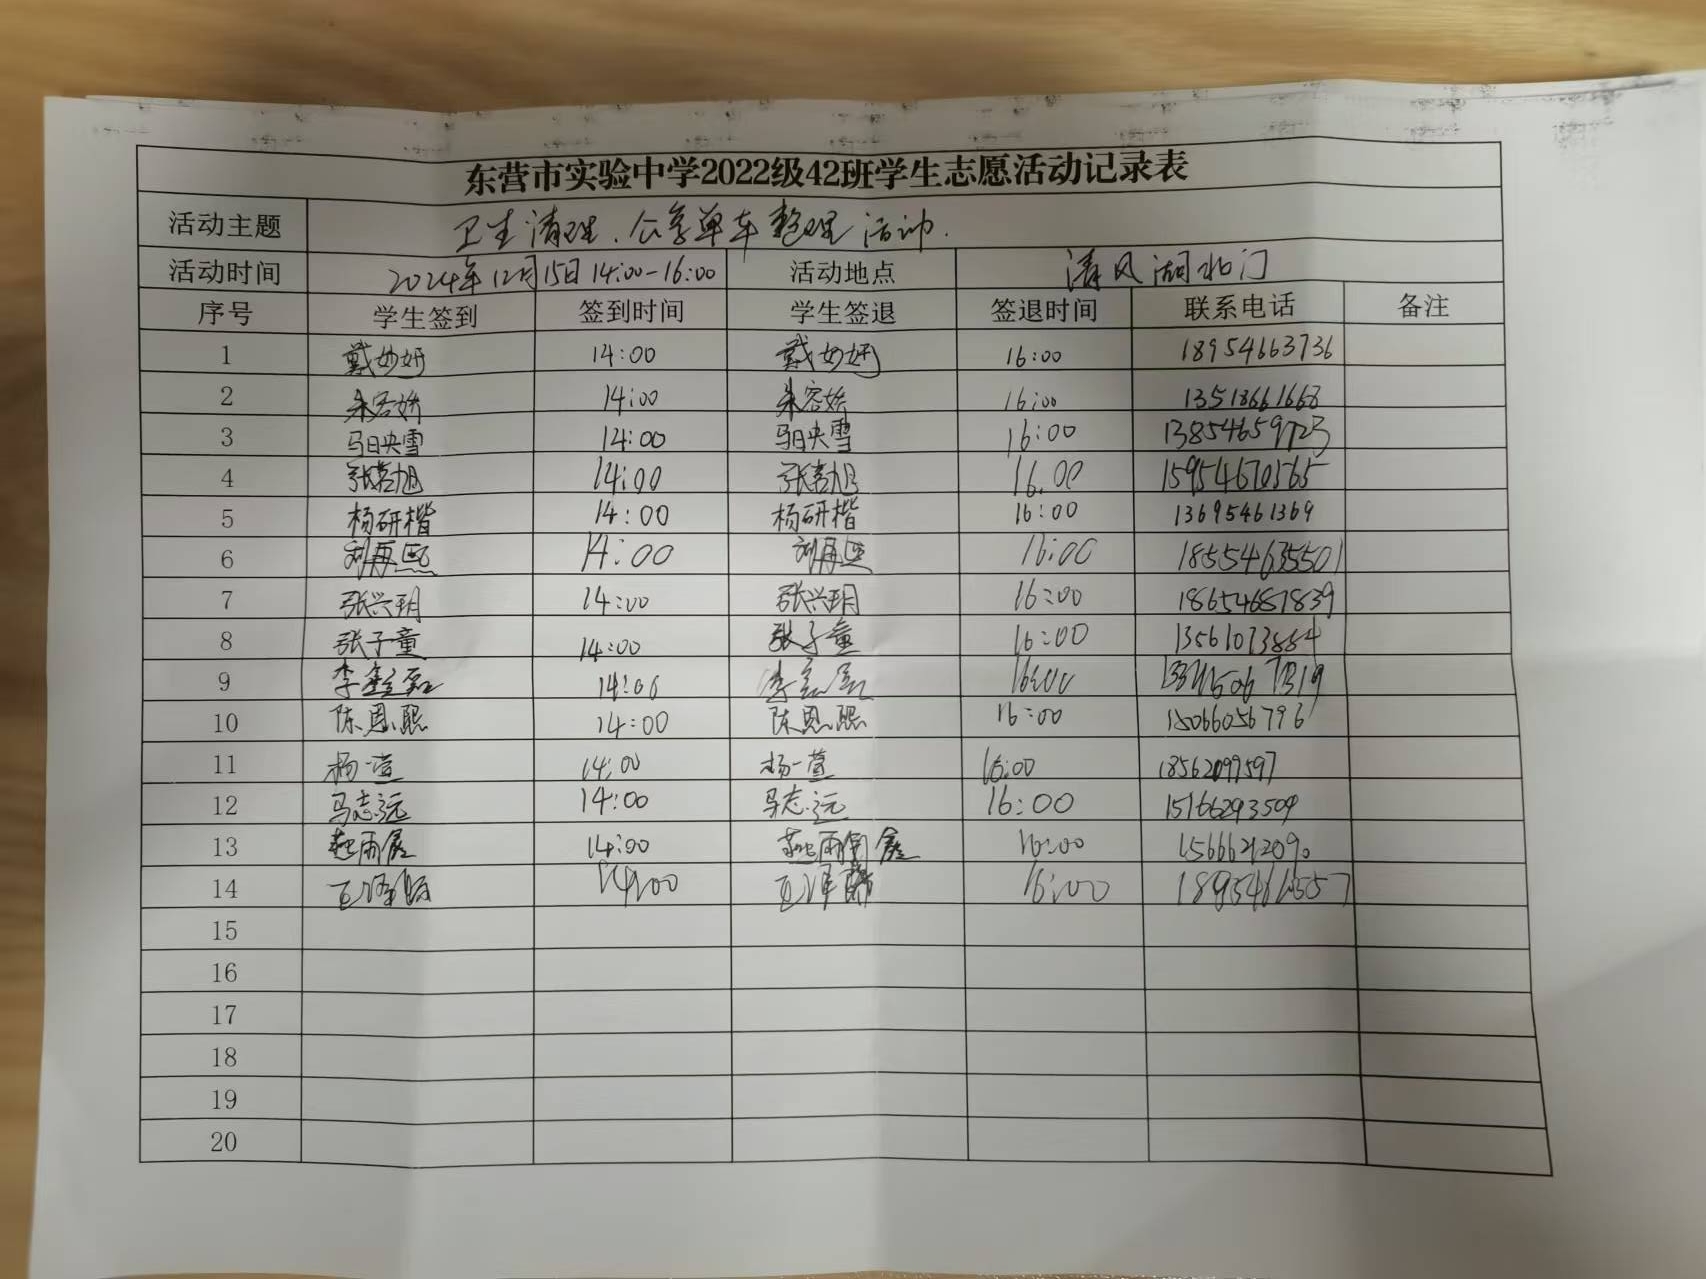 东营市实验中学2022级42班学生志愿活动记录表
活动主题 卫生清理、公享单车整理活动.
活动时间 2024年12月15日14:00-16:00 活动地点 清风湖北门
序号 学生签到 签到时间 学生签退 签退时间 联系电话 备注
1 戴妙妍 14:00 戴妙妍 16:00 18954663736
2 朱容娇 14:00 朱容娇 16:00 13518661668
3 马日央雪 14:00 马日央雪 16:00 13854659723
4 张喆旭 14:00 张喆旭 16.00 15954670565
5 杨研楷 14:00 杨研楷 16:00 13695461369
6 刘再熙 14:00 刘再熙 16:00 18554635501
7 张兴玥 14:00 张兴玥 16:00 18654687839
8 张子童 14:00 张子童 16:00 13561073884
9 李 14:00 李 16:00
10 陈恩熙 14:00 陈恩熙 16:00 15066056796
11 杨一萱 14:00 杨一萱 16:00 18562099597
12 马志远 14:00 马志远 16:00 15166293509
13 燕雨晨 14:00 燕雨 晨 16:00 15666212090
14 14:00 16:00
15
16
17
18
19
20